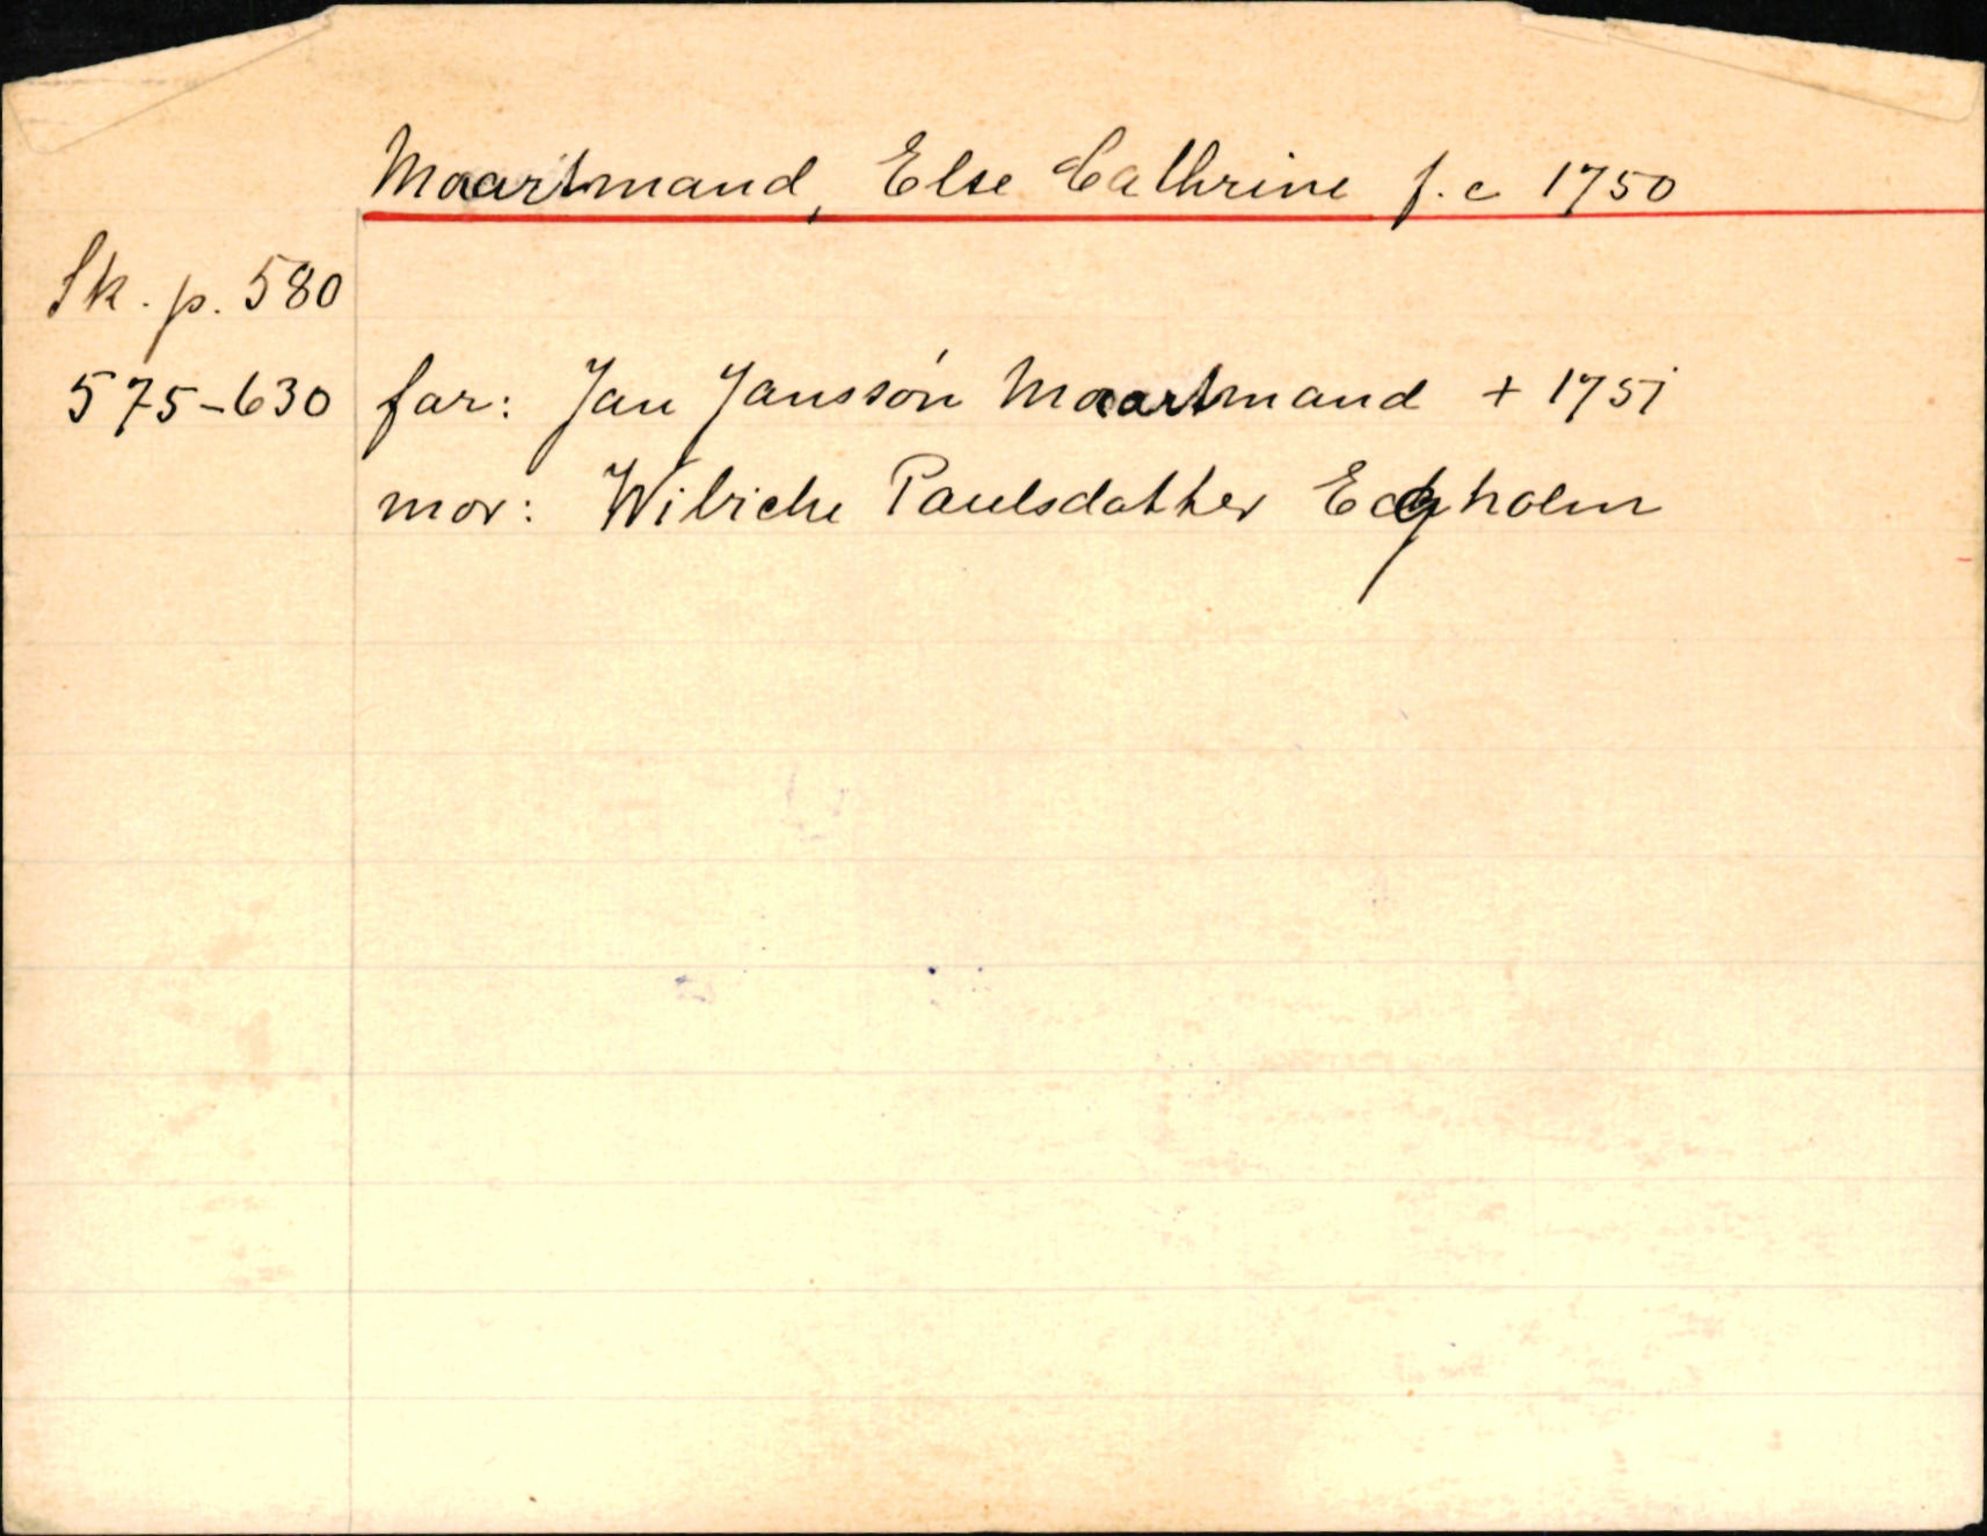 Maartmand, Else Cathrine f. c 1750
Sk. p. 580
575-630 far: Jan Janssøn Maartmand + 1751
mor: Wibiche Paulsdatter